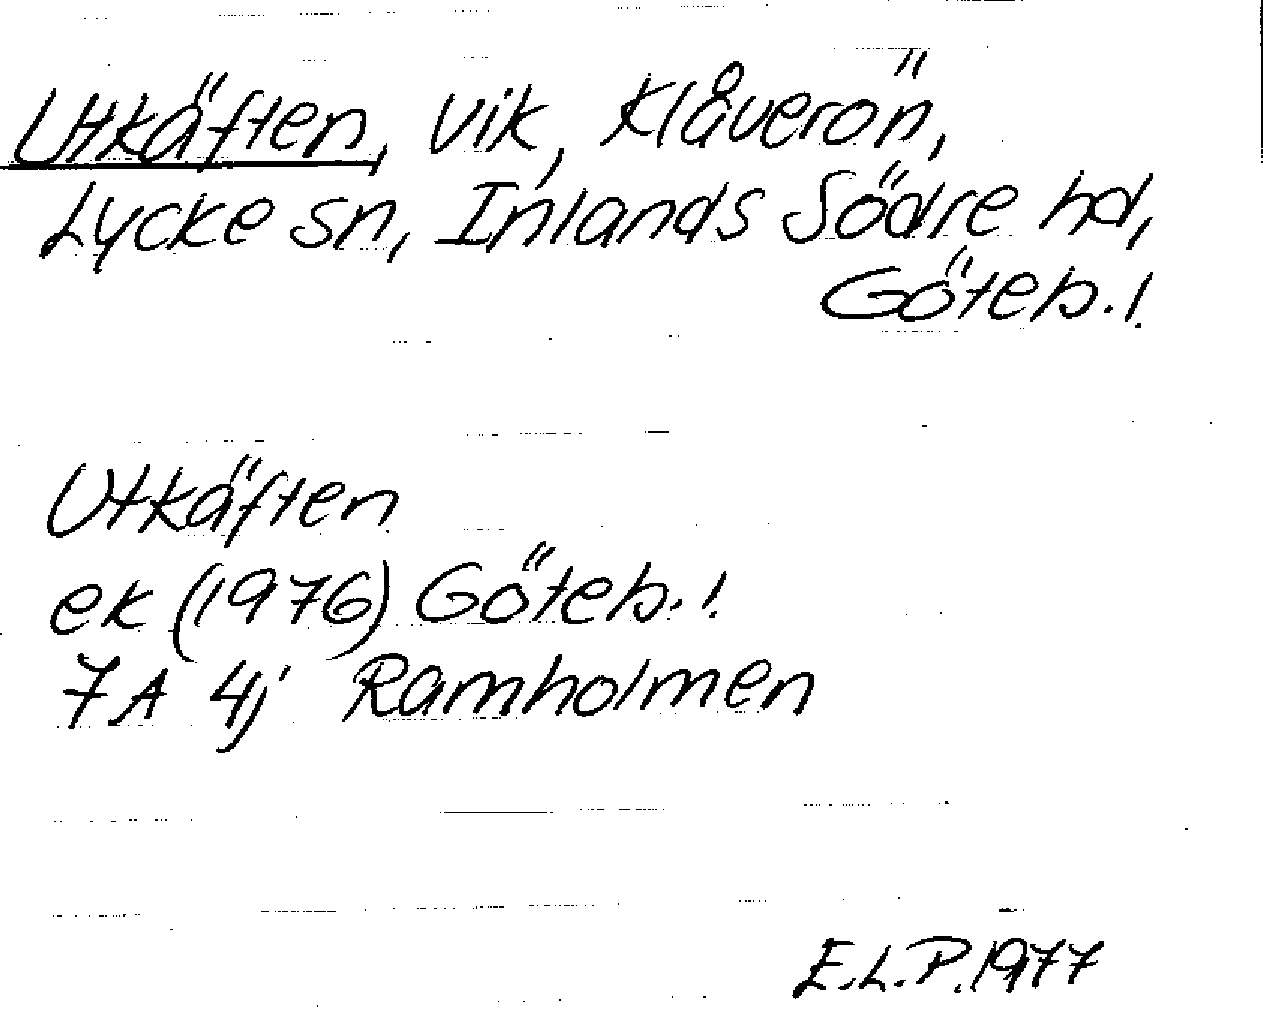 Utkäften, vik, Klåverön,
Lycke sn, Inlands Södre hd,
Göteb.!
Utkäften
ek (1976) Göteb.!
7A 4j Ramholmen
E.L.P. 1977